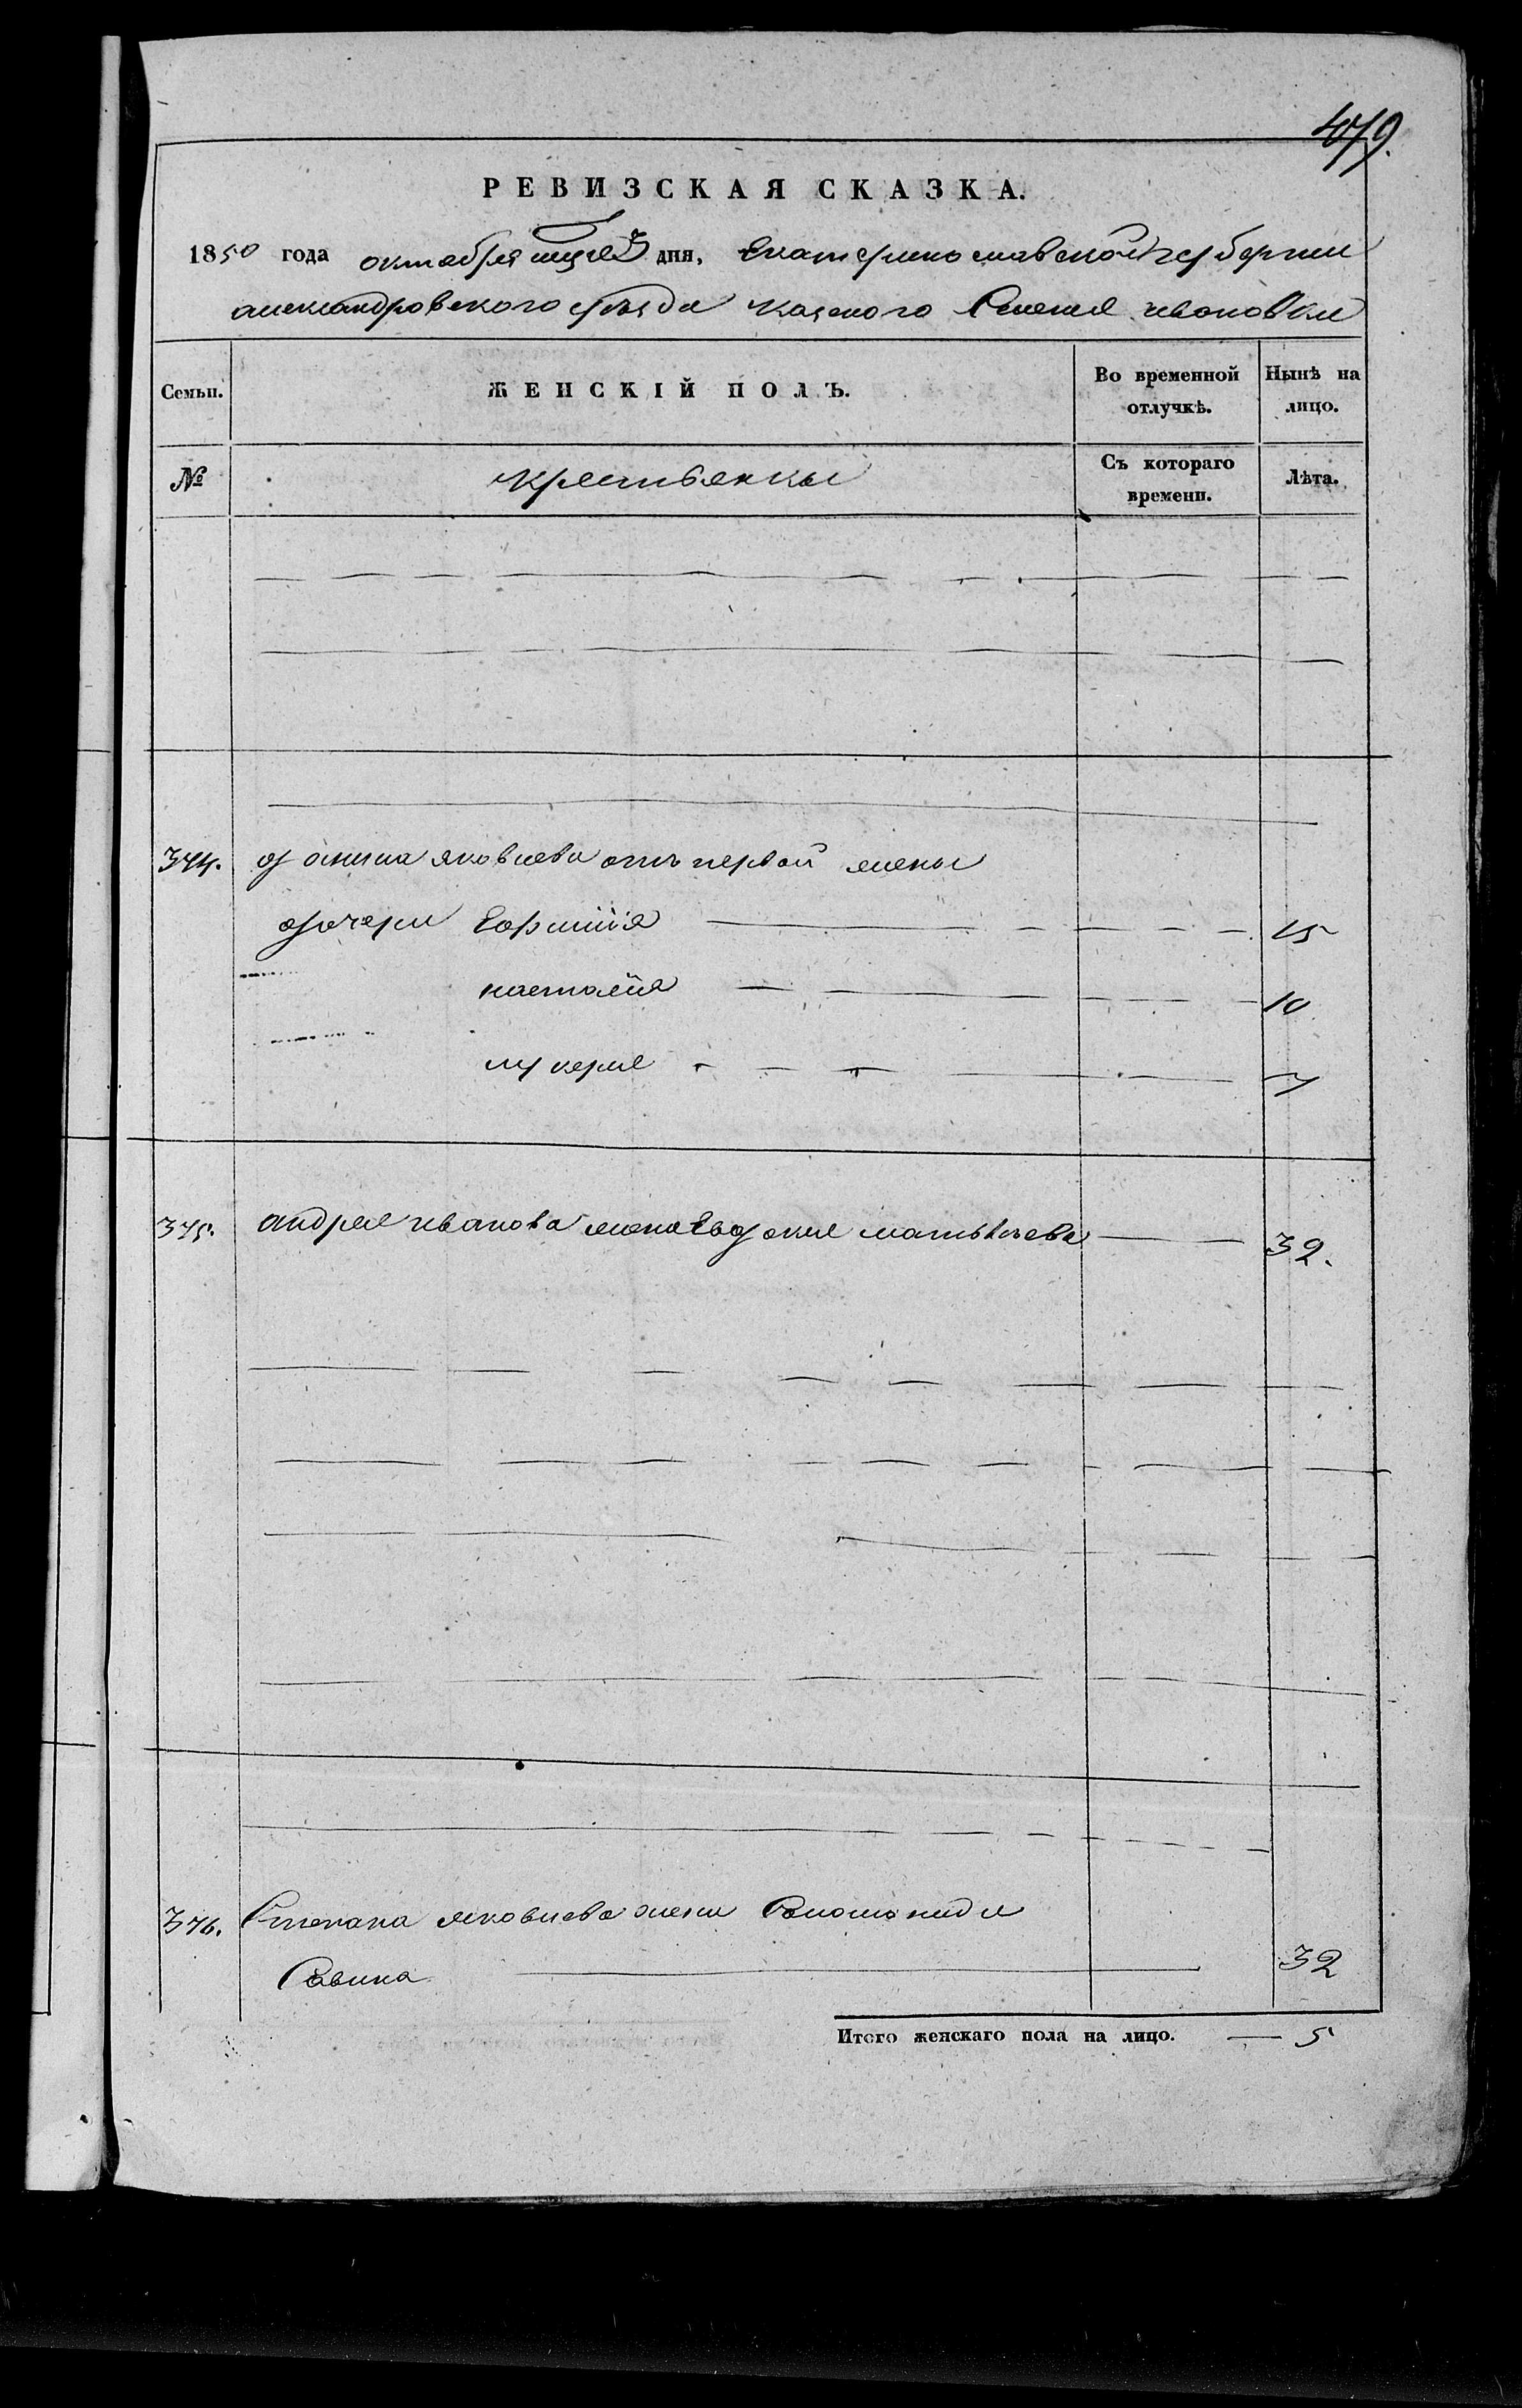 479.
РЕВИЗСКАЯ СКАЗКА.
1850 года октября дня, Екатеринославской губернии
александровского уезда казеного Селения ивановки
Семьи.
ЖЕНСКІЙ ПОЛЪ.
Во временной отлучкѣ.
Нынѣ на лицо.
№
крестьянки
Съ котораго времени.
Лѣта.
344. данила яковлева отъ первой жены
дочери Ефимія 15
наталія 10
лукеря 7
345. андрея иванова жена Евдокия матвѣева 32.
346. Степана яковлева жена Соломонида
Савина 32
Итого женскаго пола на лицо. — 5